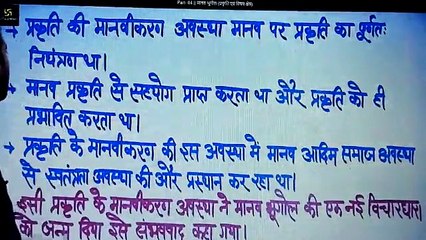 Part 44 || मानव भूगोल (प्रकृति एवं विषय क्षेत्र)
→ प्रकृति की मानवीकरण अवस्था मानव पर प्रकृति का पूर्णतः
नियंत्रण था।
→ मानव प्रकृति से सहयोग प्राप्त करता था और प्रकृति को ही
प्रभावित करता था।
→ प्रकृति के मानवीकरण की इस अवस्था में मानव आदिम समाज अवस्था
से स्वतंत्रता अवस्था की और प्रस्थान कर रहा था।
इसी प्रकृति के मानवीकरण अवस्था ने मानव भूगोल की एक नई विचारधारा
को जन्म दिया इसे संभववाद कहा गया।